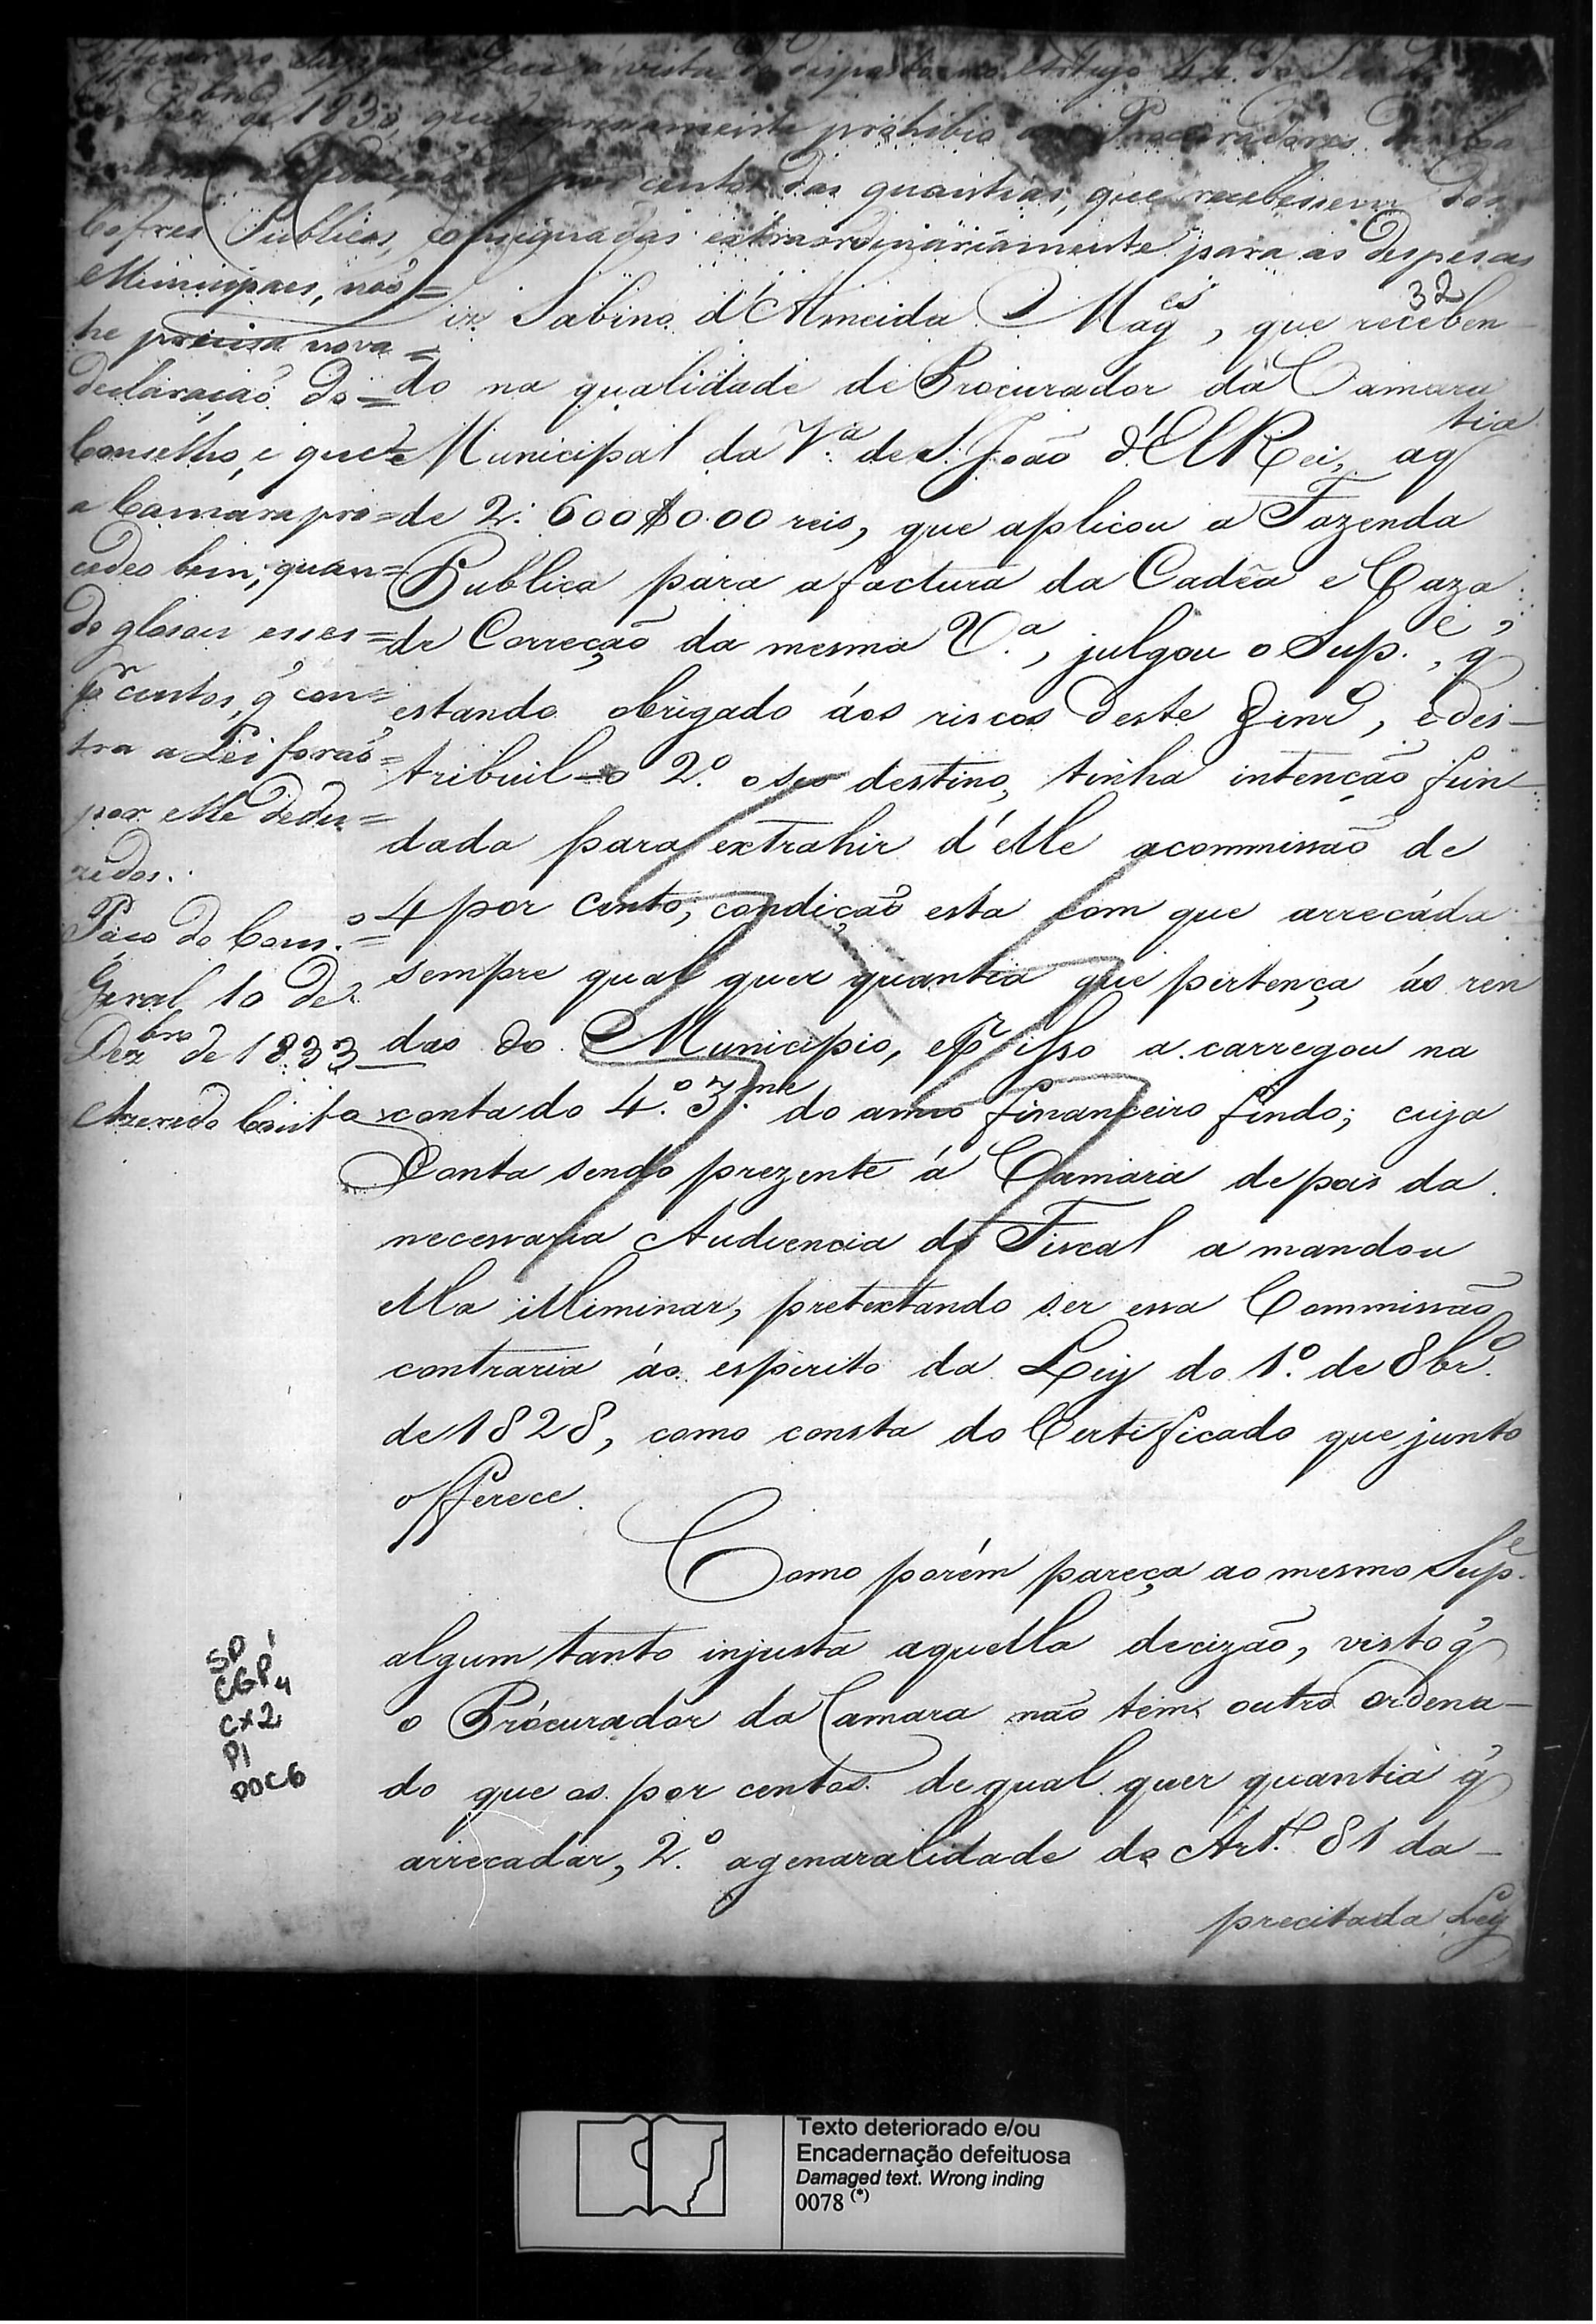 que á vista do disposto no Artigo 44 da Lei de
Dezbro de 1830, que expressamente prohibio aos Procuradores das Ca-
por cento das quantias, que recebessem dos
Cofres Publicos, consignadas extraordinariamente para as despesas
Municipaes, não =
he precisa nova =
declaração do =
Conselho, e que =
a Camara pro =
cedeo bem, quan =
do glosou esses =
pr centos, q̃ con =
tra a Lei forão =
por elle dedu =
zidos.
Paço do Cons.o =
Geral 10 de
Dezbro de 1833
Azeredo Couto
32
Sabino d'Almeida Mages, que receben-
do na qualidade de Procurador da Camara
Municipal da V.a de S. João d'ElRei, a qtia
de 2:600$000 reis, que aplicou a Fazenda
Publica para a factura da Cadêa e Caza
de Correção da mesma V.a, julgou o Sup.e, q̃
estando obrigado áos riscos deste dinro, e des-
tribuil-o 2.o o seo destino, tinha intenção fun-
dada para extrahir d'elle a commissão de
4 por cento, condição esta com que arrecáda
sempre qual quer quantia que pertença ás ren
das do Municipio, e pr isso a carregou na
conta do 4.o 3.me do anno financeiro findo; cuja
Conta sendo prezente á Camara depois da
necessaria Audiencia do Fiscal a mandou
ella illiminar, pretextando ser essa Commissão
contraria áo espirito da Ley do 1.o de 8bro.
de 1828, como consta do Certificado que junto
offerece.
Como porém pareça ao mesmo Sup.e
algum tanto injusta aquella decizão, visto q̃
o Prócurador da Camara não tem outro ordena-
do que os por centos de qual quer quantia q̃
arrecadar, 2.o a genaralidade do Art.o 81 da-
precitada Ley
SP 1
CGP4
CX2
P1
DOC6
Texto deteriorado e/ou
Encadernação defeituosa
Damaged text. Wrong inding
0078 (*)